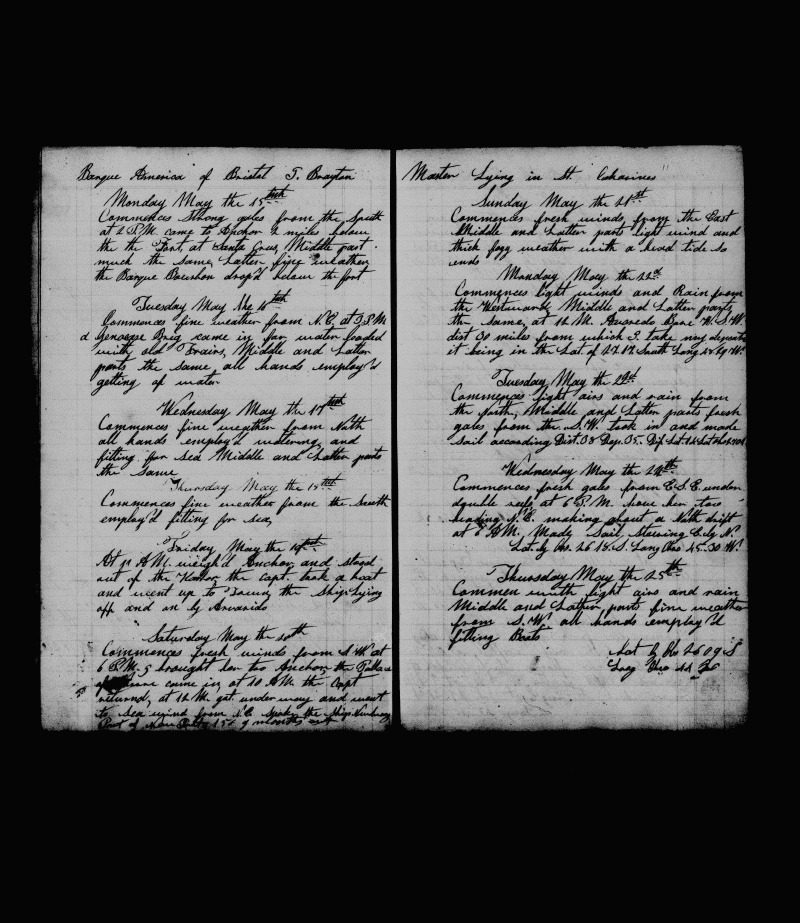 Barque America of Bristol T. Brayton
Monday May the 15teth
Commences strong gales from the South
at 2 P.M. came to Anchor 2 miles below
the the Fort, at Santa Cruz, Middle part
much the same Latter fine weather,
the Barque Bourbon drop'd below the fort
Tuesday May the 16teth
Commences fine weather from N.E. at 3 P.M
a Genoese Brig came in for water loaded
with old Friars, Middle and Latter
parts the same all hands employ'd
getting of water
Wednesday May the 17teth
Commences fine weather from North
all hands employ'd watering and
fitting for sea Middle and Latter parts
the same
Thursday May the 18teth
Commences fine weather from the South
employ'd fitting for sea,
Friday May the 19th
At 11 A.M. weigh'd Anchor, and stood
out of the Harbor the Capt. took a boat
and went up to Town, the Ship Lying
off and on by Arvarido
Saturday May the 20th
Commences fresh winds from S.W. at
6 P.M. brought her too Anchor, the
came in, at 10 A.M. the Capt
returned, at 12 M. got under way and went
to sea wind from N.E. Spoke the Ship
months out
Master Lying in St Catharines
Sunday May the 21st
Commences fresh winds from the East
Middle and Latter parts light wind and
thick fogg weather with a head tide so
ends
Monday May the 22d
Commences light winds and Rain from
the Westward, Middle and Latter parts
the same, at 12 M. Arvoredo Bore W.S.W.
dist 30 miles from which I take my departure
it being in the Lat of 27.17 South Long
Tuesday May the 23d
Commences light airs and rain from
the North, Middle and Latter parts fresh
gales from the S.W. took in and made
sail according Dist. 38 Dep. 35
Wednesday May the 24th
Commences fresh gales from E.S.E. under
double reefs at 6 P.M. hove her too
heading N.E. making about a North drift
at 6 A.M. Made Sail, Stearing E by N.
Lat. by Obs. 26.18. S. Long Chro 45-30 W.
Thursday May the 25th
Commen with light airs and rain
Middle and Latter parts fine weather
from S.W. all hands employ'd
fitting Boats
Lat by Obs 26 09 S
Long Chro 44